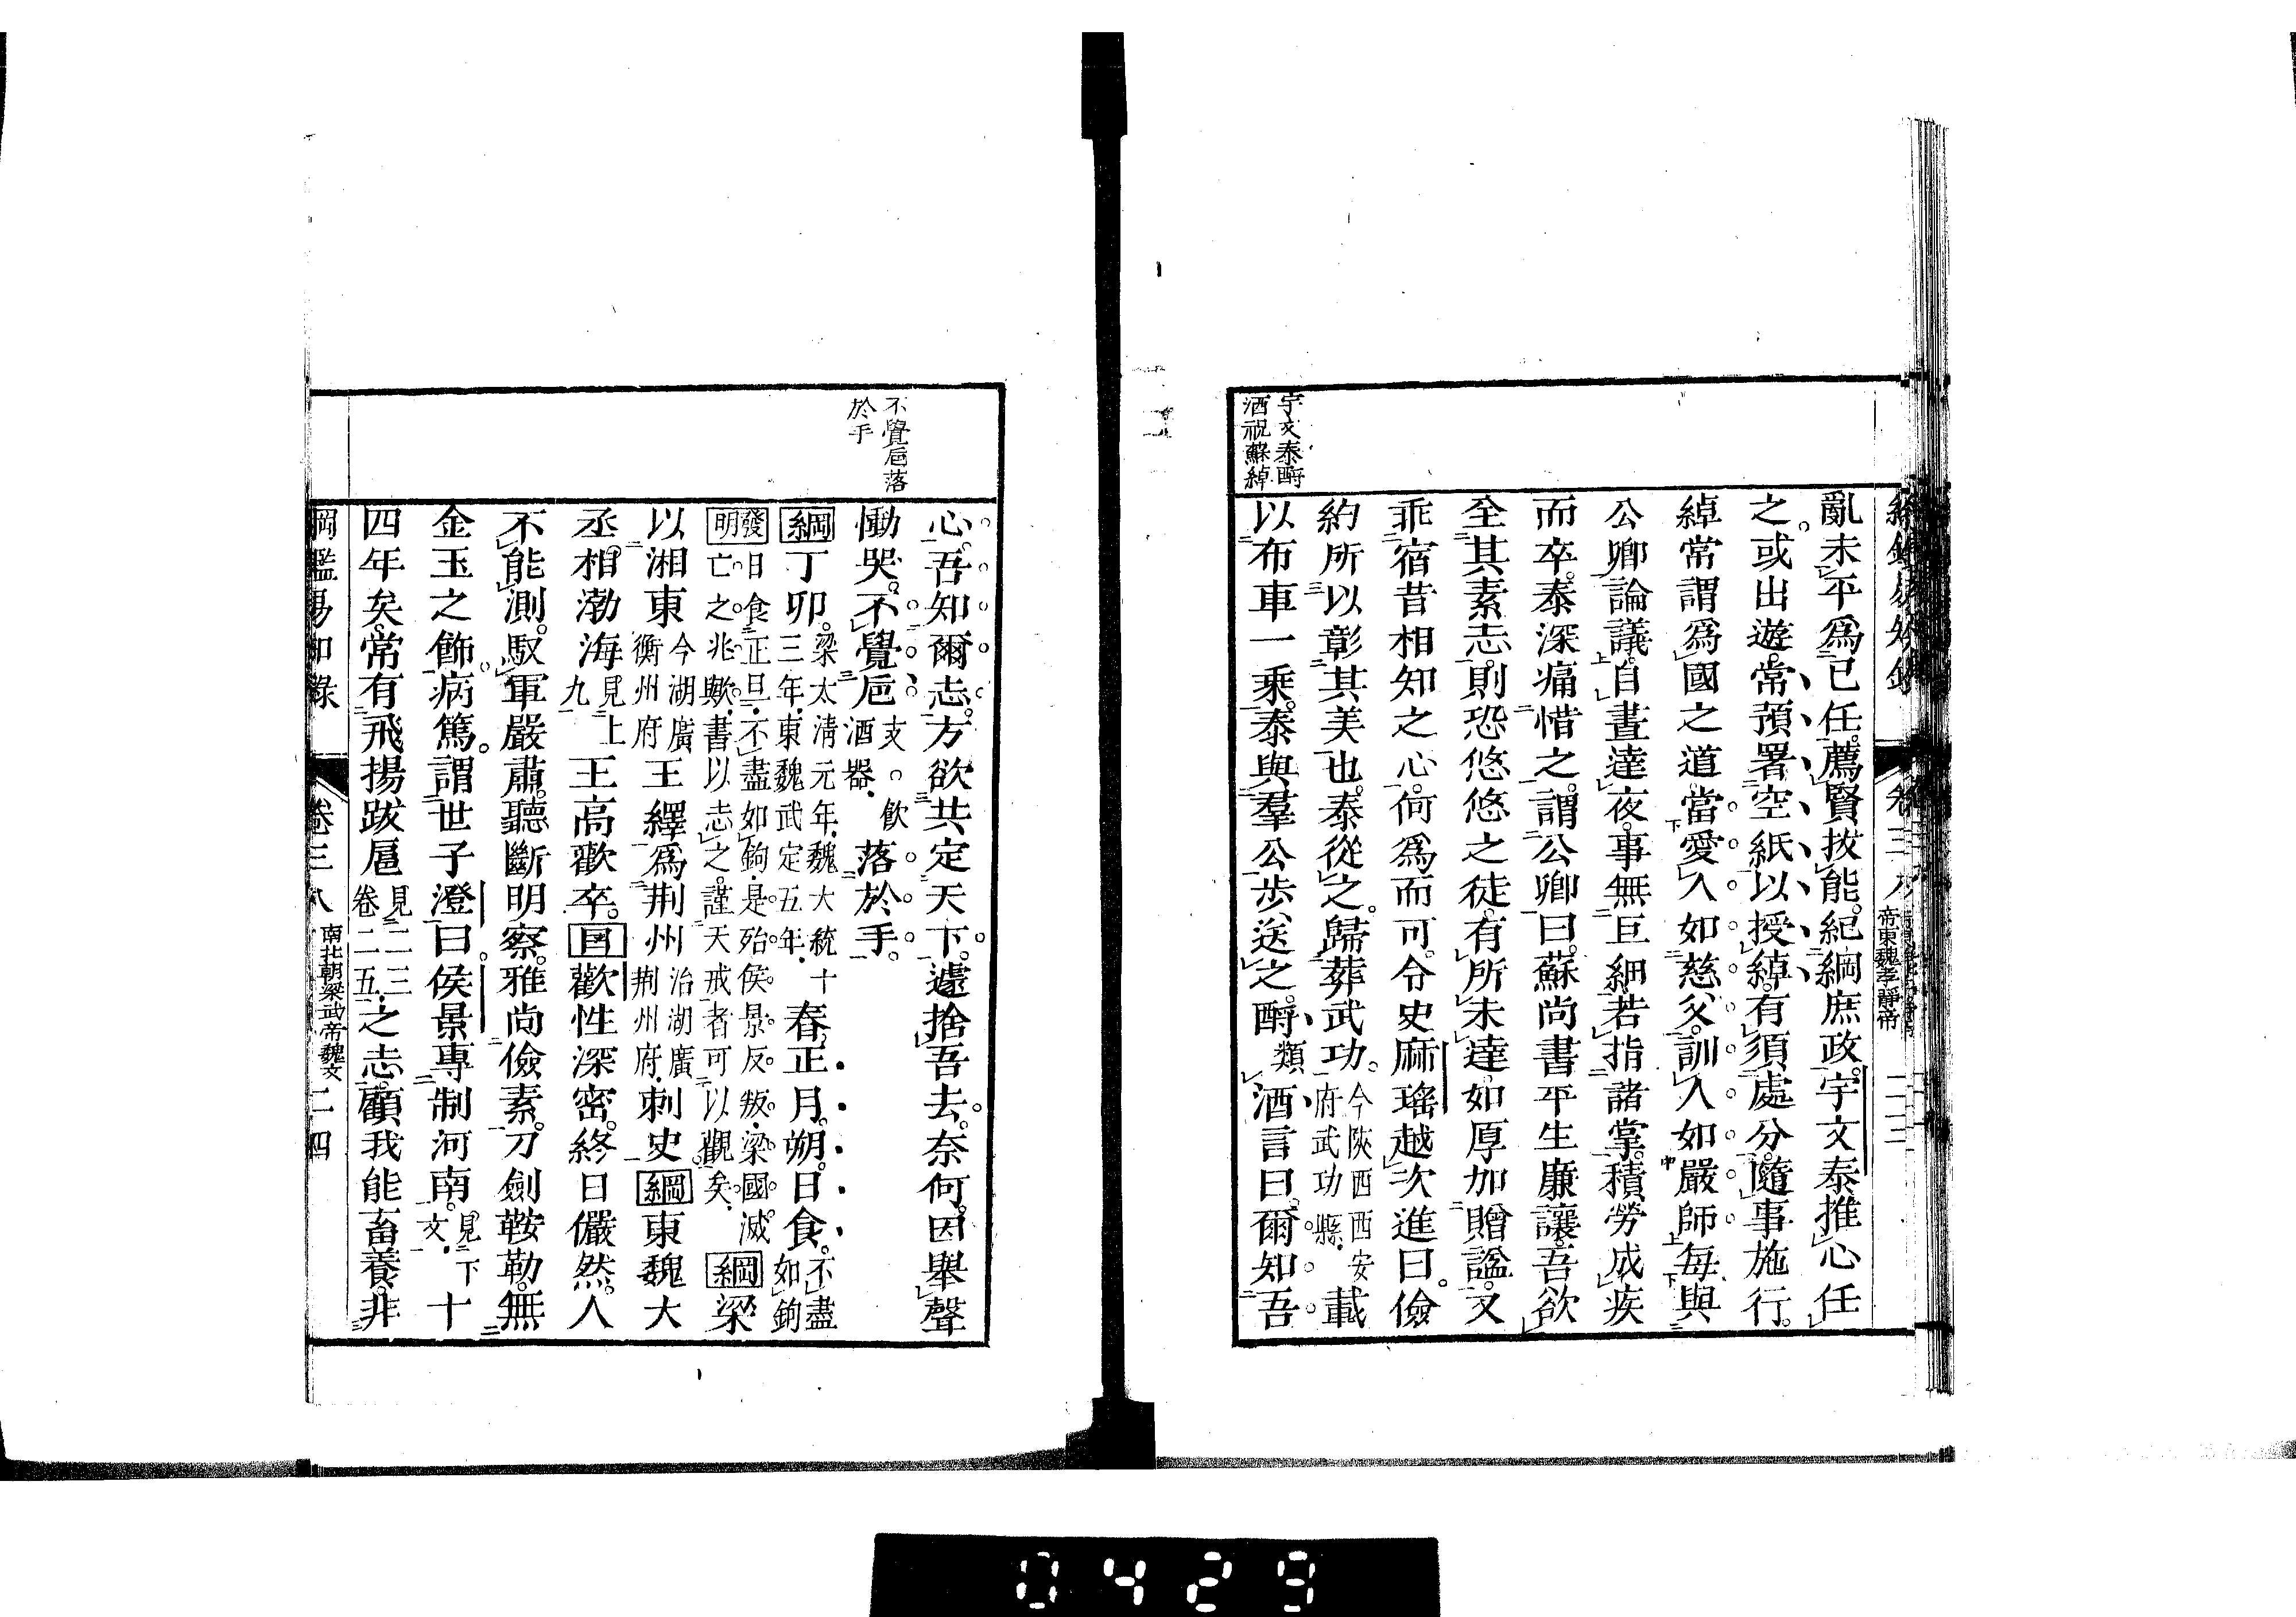 亂未平爲已任。薦賢拔能。紀綱庶政。宇文泰推心任
之。或出遊。常預署空紙以授綽。有須處分。隨事施行。
綽常謂爲國之道。當愛人如慈父。訓人如嚴師。每與
公卿論議。自晝達夜。事無巨細。若指諸掌。積勞成疾
而卒。泰深痛惜之。謂公卿曰。蘇尚書平生廉讓。吾欲
全其素志。則恐悠悠之徒。有所未達。如厚加贈諡。又
乖宿昔相知之心。何爲而可。令史麻瑤越次進曰。儉
約所以彰其美也。泰從之。歸葬武功。今陝西西安府武功縣。載
以布車一乘。泰與羣公步送之。酹類酒言曰。爾知吾
宇文泰酹
酒祝蘇綽
帝東魏孝靜帝
二三
不覺巵落
於手
心。吾知爾志。方欲共定天下。遽捨吾去。奈何。因舉聲
慟哭。不覺巵支。飮酒器。落於手。
綱丁卯。梁太淸元年。魏大統十三年。東魏武定五年。春。正月。朔。日食。不盡如鉤
發明日食正旦。不盡如鉤。是殆侯景反叛。梁國滅亡之兆歟。書以志之。謹天戒者可以觀矣。綱梁
以湘東今湖廣衡州府王繹爲荆州治湖廣荆州府。刺史綱東魏大
丞相渤海見上九王高歡卒。目歡性深密。終日儼然。人
不能測。馭軍嚴肅。聽斷明察。雅尚儉素。刀劍鞍勒。無
金玉之飾。病篤。謂世子澄曰。侯景專制河南。見下文。十
四年矣。常有飛揚跋扈見二三卷二五。之志。顧我能畜養。非
綱鑑易知錄 卷三八 南北朝梁武帝魏文 二四
0429